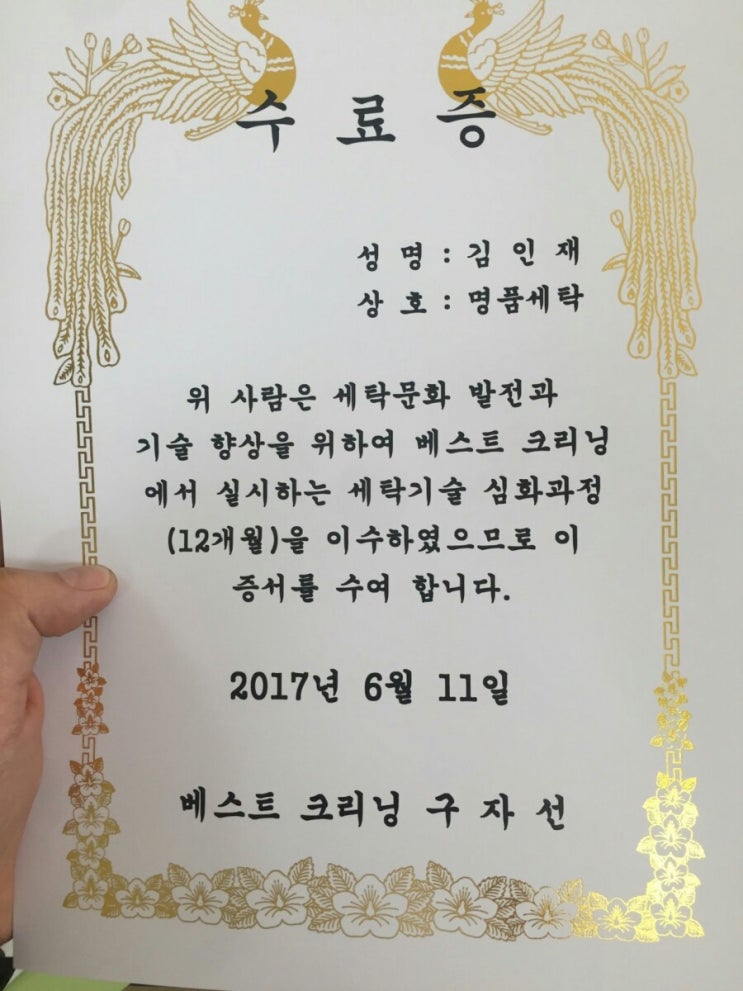 수 료 증
성 명 : 김 인 재
상 호 : 명품세탁
위 사람은 세탁문화 발전과
기술 향상을 위하여 베스트 크리닝
에서 실시하는 세탁기술 심화과정
(12개월)을 이수하였으므로 이
증서를 수여 합니다.
2017년 6월 11일
베스트 크리닝 구 자 선